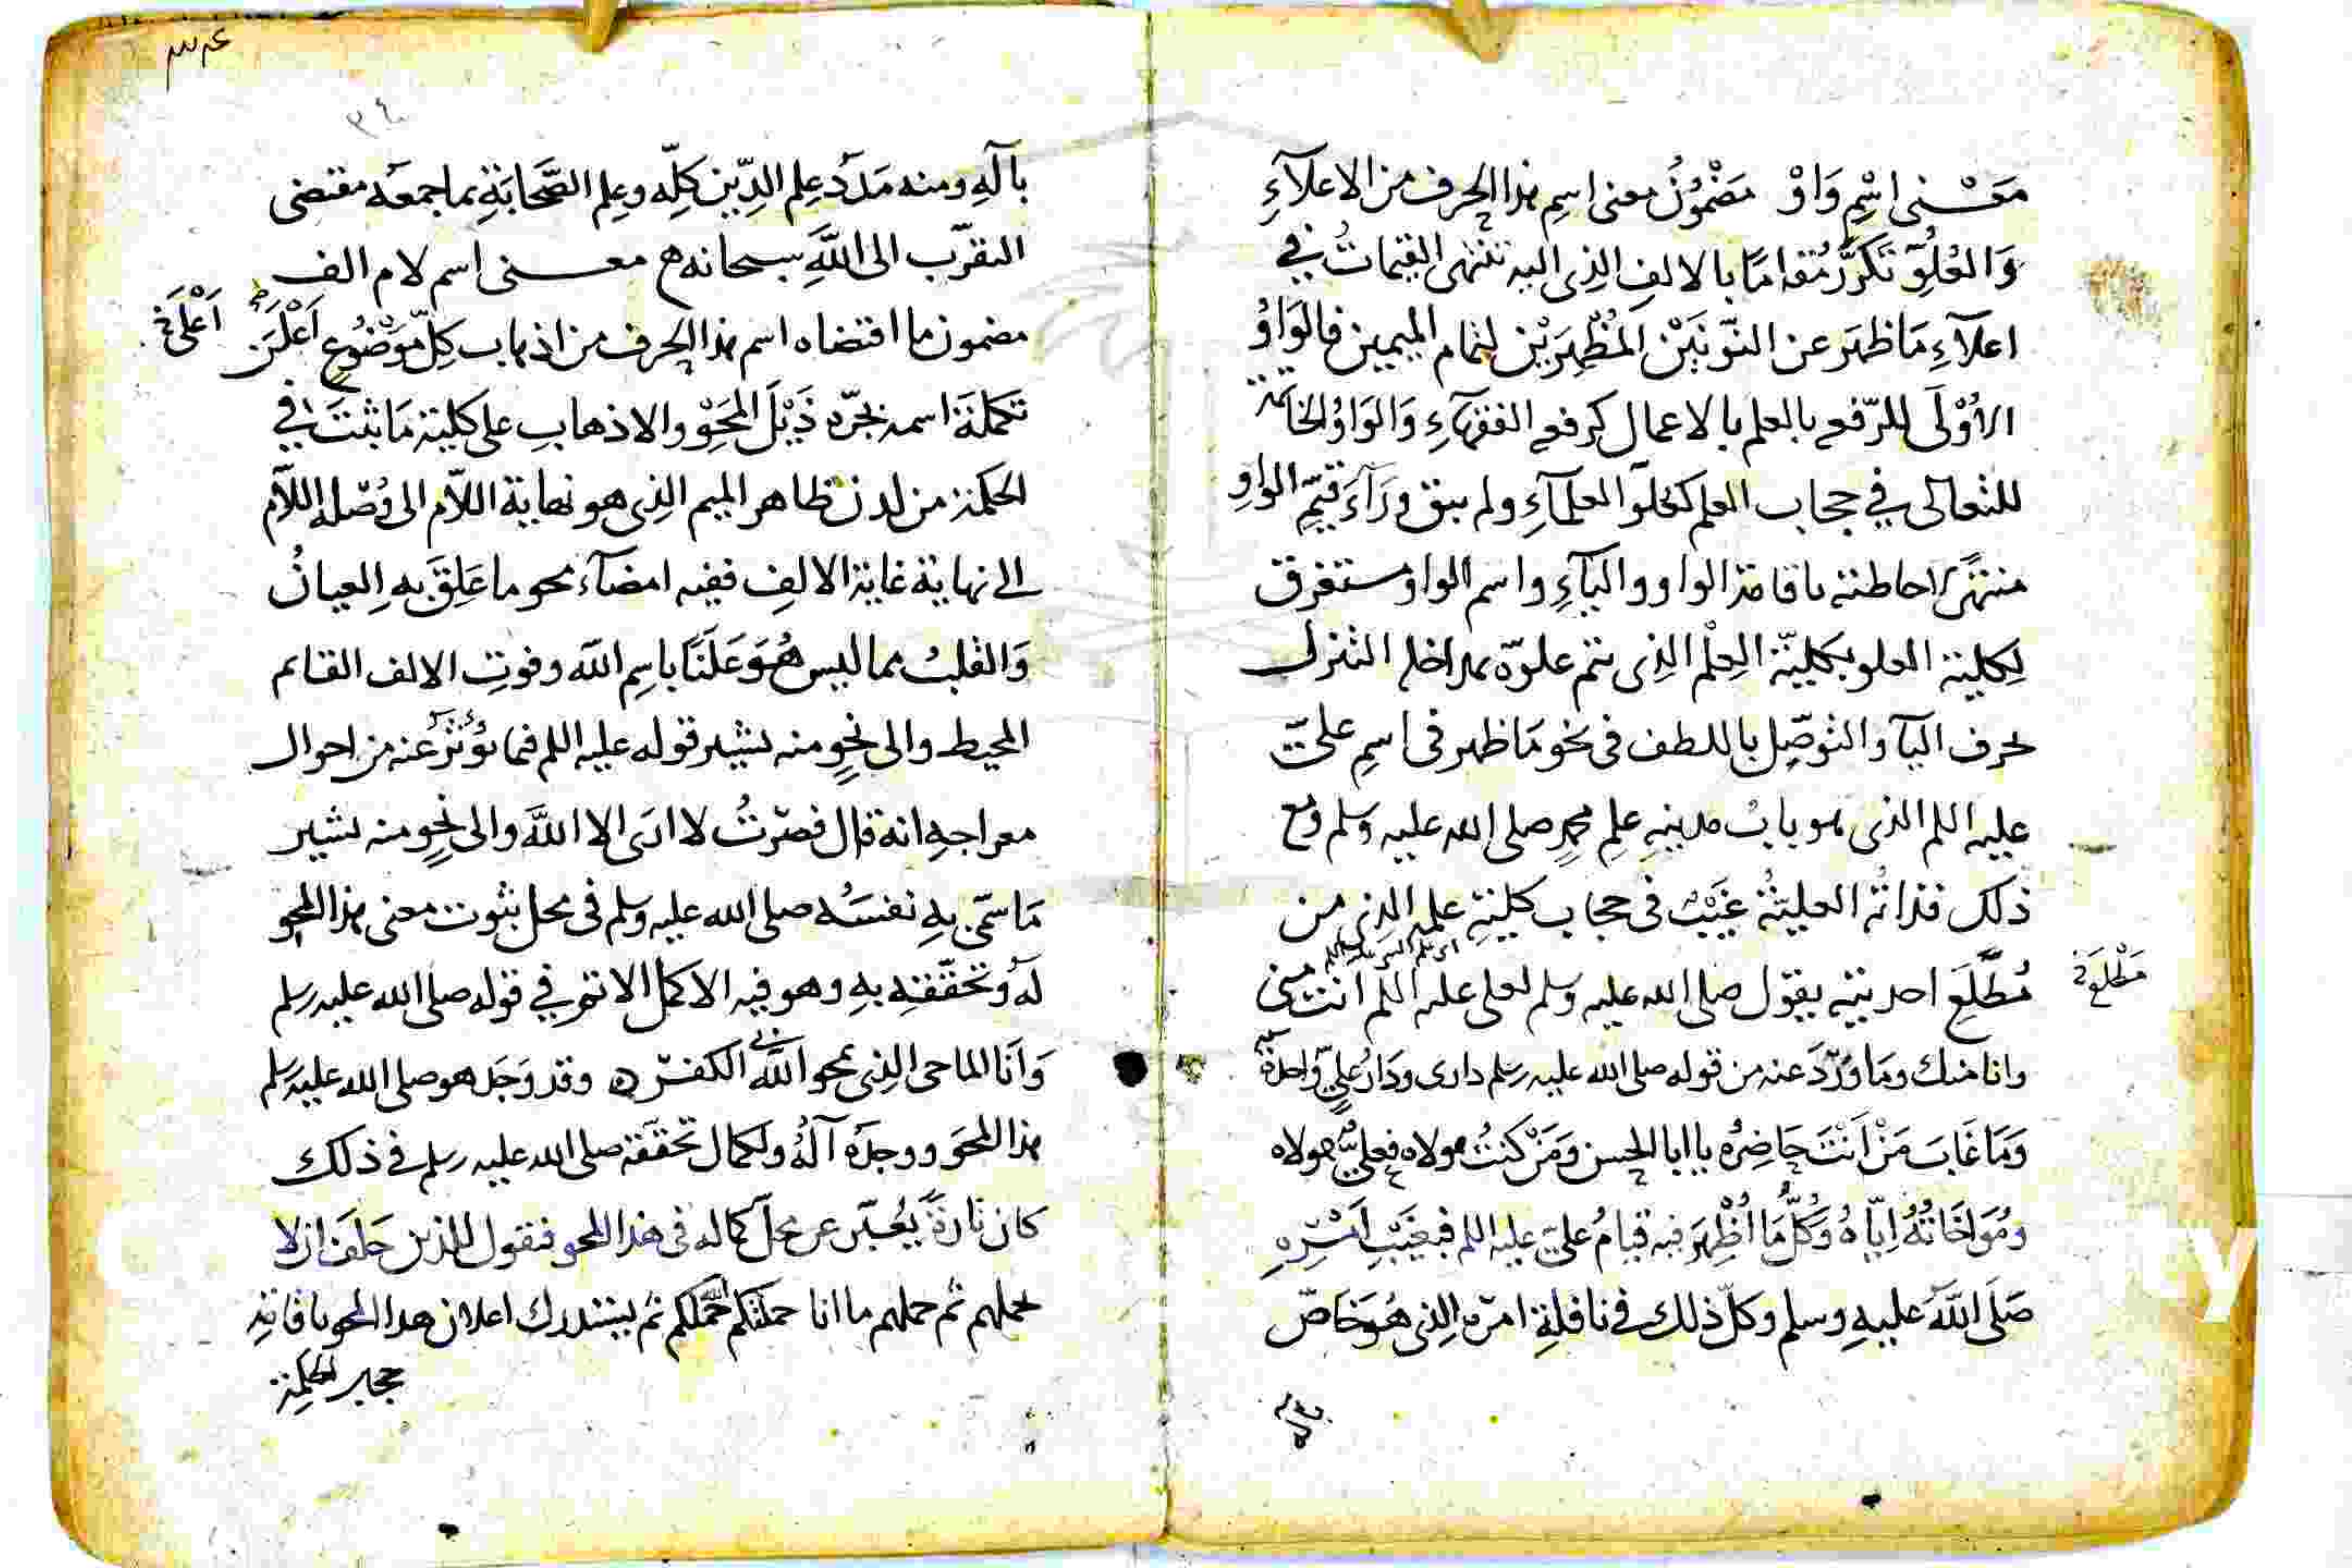 معنى اسْمِ وَاوْ مَضْمُونُ معنى اسمِ هذا الحرف من الاعلآءِ
وَالعُلوِّ تَكَرَّرَ مُقامًا بالالفِ الذى اليه تنتهى القيمات في
اعلآءِ مَا ظهَرَ عن النّونَيْن المُظْهِرَيْن لتمام الميمين فالوَاوُ
الأوْلَى للرّفع بالعلم بالاعمال كرفع الفقهآءِ وَالوَاوُ الخاتمة
للتعالى في حجاب العلم كعلوّ العلمآءِ ولم يبق وَرَآءَ قيّم الواوِ
منتهى احاطته باقامة الواو والبآءِ واسم الواو مستغرق
لكلية العلو بكليّة العِلْم الذى تتم علوّه بمداخله التنزل
بحرف اليآ والتوصّل باللطف فى نحو مَا ظهر فى اسمِ علىّ
عليه اللم الذى هو بابُ مدينةِ علمِ محمدٍ صلى الله عليه وسلم ومع
ذلك فذاتُه العليّةُ غَيْبٌ فى حجاب كليّةِ علمه الذى من
مُطَّلَعَ احديته يقول صلى الله عليه وسلم لعلى عليه اللم انت منى
مَطْلَع
وانا منك وَمَا وَرَدَ عنه من قوله صلى الله عليه وسلم دارى ودَارُ علىٍّ واحدة
وَمَا غَابَ مَنْ اَنْتَ حَاضِرُه يا ابا الحسن وَمَنْ كنتُ مولاه فعلىٌّ مولاه
ومُوَاخَاتُهُ اِيّاهُ وَكُلُّ مَا اُظْهِرَ فيه قيامُ علىّ عليه اللم فبغَيْبِ اَمْرِهِ
صَلى اللّه عليهِ وسلم وكلّ ذلك فى نافلةِ امره الذى هُوَ خَاصّ
٣٤
بآلهِ ومنه مَدَدُ علم الدِّين كلِّه وعِلم الصَّحابَةِ بما جمعَه مقتضى
التقرّب الى اللّهِ سبحانه معنى اسم لام الف
مضمون ما اقتضاه اسم هذا الحرف من اذهاب كلّ مَوْضُوع اَعْلَنَ
اَعْلَى
تكملة اسمه بجرّه ذَيْلَ المَحْوِ والاذهاب على كلية مَا ثبتَ في
الحكمة من لدن ظاهر الميم الذى هو نهاية اللاّم الى وُصْلة اللاّم
الى نهاية غاية الالفِ ففيه امضآء محو ما عَلِقَ بهِ العيانُ
وَالقلبُ مما ليس هُوَ عَلَنًا باسمِ اللّه وفوت الالف القائم
المحيط والى نحوٍ منه يشير قوله عليه اللم فيما يُؤْثَرُ عنه من احوال
معراجهِ انه قال فصرْتُ لا ارى الا اللّهَ والى نحوٍ منه يشير
مَا سَمّى بهِ نفسَه صلى الله عليه وسلم فى محل ثبوت معنى هذا المحو
لَه وتحقّقه بهِ وهو فيه الاكمل الاتم في قوله صلى الله عليه وسلم
وَاَنَا الماحى الذى يمحو اللّه بي الكفرَ وقد وَجَد هو صلى الله عليه وسلم
هذا المحوَ ووجدَه آلُه ولكمال تحققه صلى الله عليه وسلم فى ذلك
كان تارةً يُعَبّر عن محلّ كماله فى هذا المحو فيقول للذين حَلَفَ ان لا
يحملهم ثم حملهم ما انا حملتكم اللّه حَمَلكم ثم يستدرك اعلان هذا المحو باقامة
حجاب الحكمة